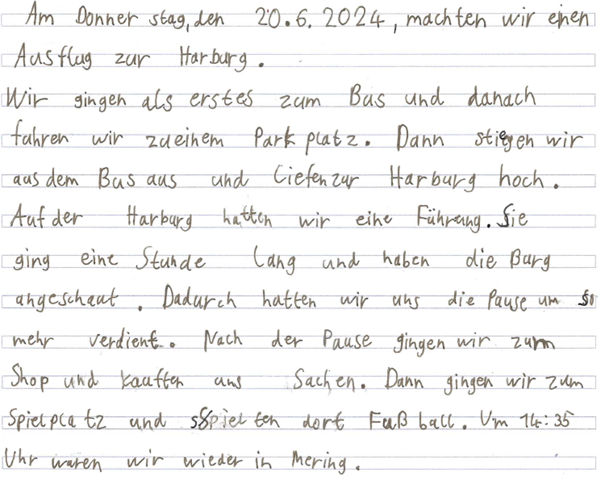 Am Donnerstag, den 20.6.2024, machten wir einen
Ausflug zur Harburg.
Wir gingen als erstes zum Bus und danach
fuhren wir zu einem Parkplatz. Dann stiegen wir
aus dem Bus aus und liefen zur Harburg hoch.
Auf der Harburg hatten wir eine Führung. Sie
ging eine Stunde lang und haben die Burg
angeschaut. Dadurch hatten wir uns die Pause um so
mehr verdient. Nach der Pause gingen wir zum
Shop und kauften uns Sachen. Dann gingen wir zum
Spielplatz und spielten dort Fußball. Um 14:35
Uhr waren wir wieder in Mering.